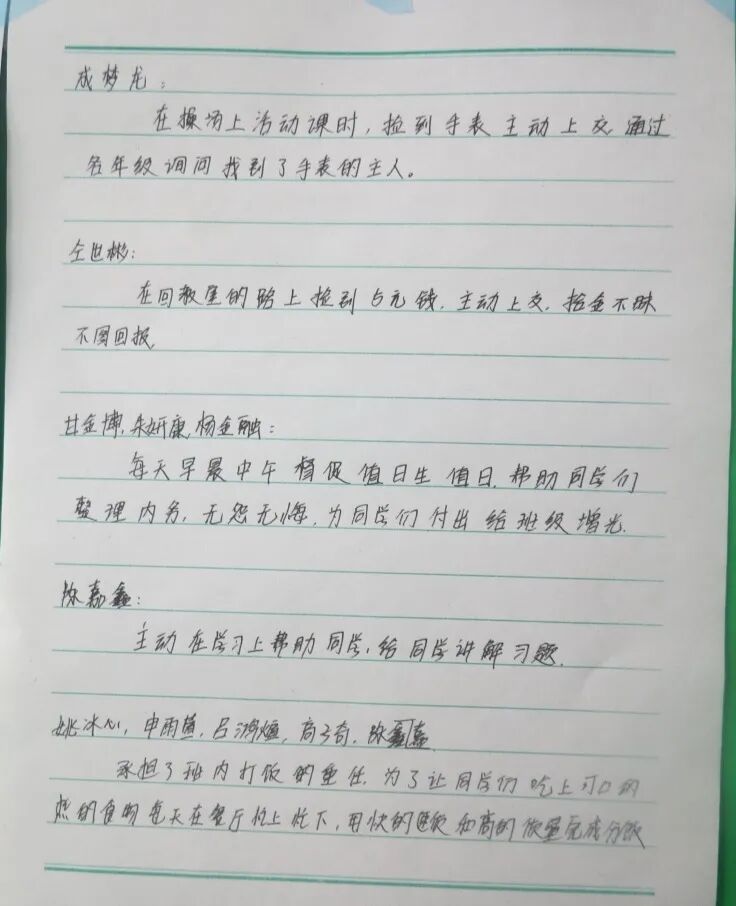 成梦龙：
在操场上活动课时，捡到手表主动上交，通过
各年级询问找到了手表的主人。
仝世彬：
在回教室的路上捡到5元钱，主动上交，拾金不昧
不图回报，
甘金博，朱妍康，杨金融：
每天早晨中午督促值日生值日，帮助同学们
整理内务，无怨无悔，为同学们付出给班级增光.
陈嘉鑫：
主动在学习上帮助同学，给同学讲解习题.
姚冰心，申雨茴，吕鸿煊，高子奇，陈嘉
承担了班内打饭的重任，为了让同学们吃上可口的
热的食物每天在餐厅忙上忙下，用快的速度和高的质量完成分饭